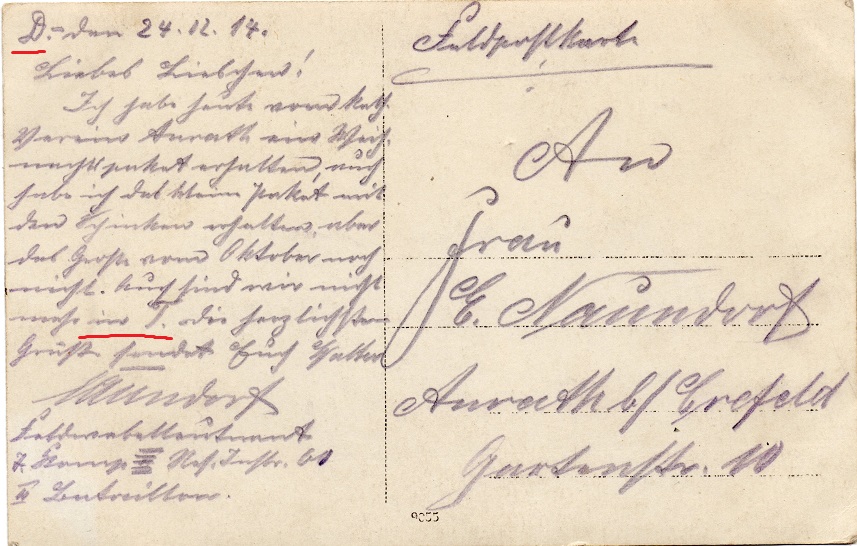 D. - den 24.12.14.
Liebes Lieschen!
Ich habe heute vom Kath.
Verein Anrath ein Weih-
nachtspaket erhalten, auch
habe ich das klein Paket mit
den Schinken erhalten, aber
das Große vom Oktober noch
nicht. Auch sind wir nicht
mehr in T. die herzlichsten
Grüße sendet Euch Walter
Naundorf
Feldwebelleutnant
7. Komp. Res. Inftr.
II Bataillon.
Feldpostkarte
An
Frau
E. Naundorf
Anrath b/ Crefeld
Gartenstr. 10
9355